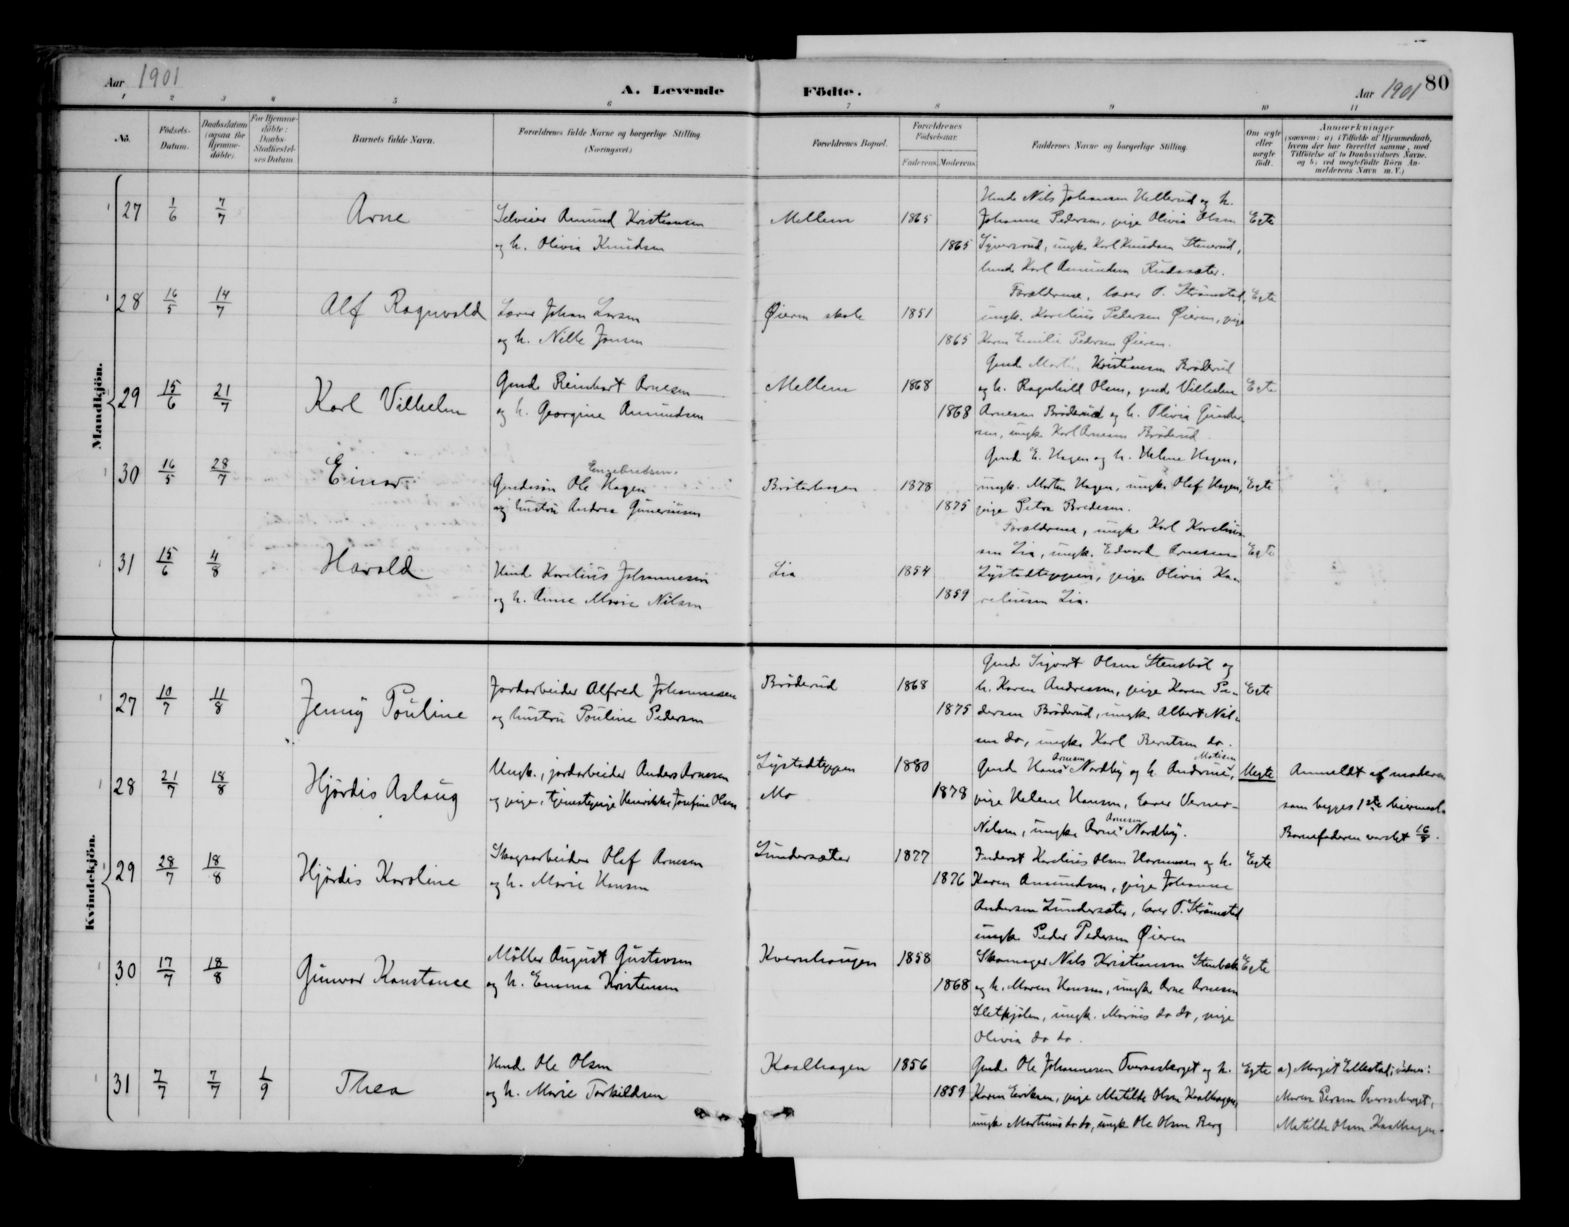 Aar 1901
A. Levende Fødte.
Aar 1901 80
1 2 3 4 5 6 7 8 9 10 11
No.
Fødsels-Datum.
Daabsdatum (ogsaa for Hjemme-døbte).
For Hjemme-døbte: Daabs-Stadfæstel-ses Datum
Barnets fulde Navn.
Forældrenes fulde Navne og borgerlige Stilling (Næringsvei)
Forældrenes Bopæl.
Forældrenes Fødselsaar.
Faderens. Moderens.
Faddernes Navne og borgerlige Stilling.
Om ægte eller uægte født.
Anmærkninger
Mandkjøn.
27 1/6 7/7 Arne
Selveier Amund Kristiansen
og h. Olivia Knudsen
Mellem 1865 1865
Huusm Nils Johansen Hellerud og h.
Johanne Pedersen, pige Olivia Olsen
Syversrud, ungk. Karl Knudsen Stenerud,
Karl Amundsen Rudssæter.
Egte
28 16/5 14/7 Alf Ragnvald
Lærer Johan Larsen
og h. Nille Jensen
Øieren skole 1851 1865
Forældrene, lærer P. Strømstad,
ungk. Karelius Pedersen Øieren, pige
Karen Emilie Pedersen Øieren.
Egte
29 15/6 21/7 Karl Vilhelm
Gmd. Reinhart Arnesen
og h. Georgine Amundsen
Mellem 1868 1868
Gmd. Kristiansen Brøderud
og h. Ragnhild Olsen, gmd. Vilhelm
Arnesen Brøderud og h. Olivia Gunder-
sen, ungk. Karl Arnesen Brøderud
Egte
30 16/5 28/7 Einar
Engebretsen
Gmdssøn Ole Hagen
og hustru Andrea Guneriusen
Bråtenhagen 1878 1875
Gmd. E. Hagen og h. Helene Hagen,
ungk. Morten Hagen, ungk. Olaf Hagen,
pige Petra Bredesen.
Egte
31 15/6 4/8 Harald
Hmd. Karelius Johannesen
og h. Anne Marie Nilsen
Lia 1854 1859
Forældrene, ungk. Karl Karelius-
sen Lia, ungk. Edvard Arnesen
Lystadteppen, pige Olivia Ka-
reliusen Lia.
Egte
Kvindekjøn.
27 10/7 11/8 Jenny Pouline
Jordarbeider Alfred Johannessen
og hustru Pouline Pedersen
Brøderud 1868 1875
Gmd. Sigvart Olsen Stensbøl og
h. Karen Andreasen, pige Karen Pe-
dersen Brøderud, ungk. Albert Nil-
sen do, ungk. Karl Berntsen do.
Egte
28 21/7 18/8 Hjørdis Aslaug
Ungk., jordarbeider Anders Arnesen
og pige, tjenestepige Henrikke Josefine Olsen
Lystadteppen
Mo
1880 1878
Gmd. Hans Arnesen Nordby og h. Andrine Matisen,
pige Helene Hansen, lærer Verner
Nilsen, ungk. Arne Arnesen Nordby.
Uegte
Anmeldt af moderen
som begges 1ste leiermaal.
Barnefaderen varslet 16/8.
29 28/7 18/8 Hjørdis Karoline
Skogsarbeider Olaf Arnesen
og h. Marie Hansen
Lundersæter 1877 1876
Inderst Karelius Olsen Hornmoen og h.
Karen Amundsen, pige Johanne
Andersen Lundersæter, lærer P. Strømstad
ungk. Peder Pedersen Øieren
Egte
30 17/7 18/8 Gunvor Konstance
Møller August Gustavsen
og h. Emma Kristensen
Kvernhaugen 1858 1868
Skomager Nils Kristiansen Stenbæk
og h. Maren Hansen, ungk. Arne Arnesen
Sletkjølen, ungk. Marius do do, pige
Olivia do do.
Egte
31 7/7 7/7 1/9 Thea
Hmd. Ole Olsen
og h. Marie Torkildsen
Kaalhagen 1856 1859
Gmd. Ole Johannesen Tverraaberget og h.
Karen Eriksen, pige Matilde Olsen Kaalhagen,
ungk. Martinus do do, ungk. Ole Olsen Berg
Egte
a) Margit Ellestad; vidner:
Maren Persen Tverraaberget,
Matilde Olsen Kaalhagen.